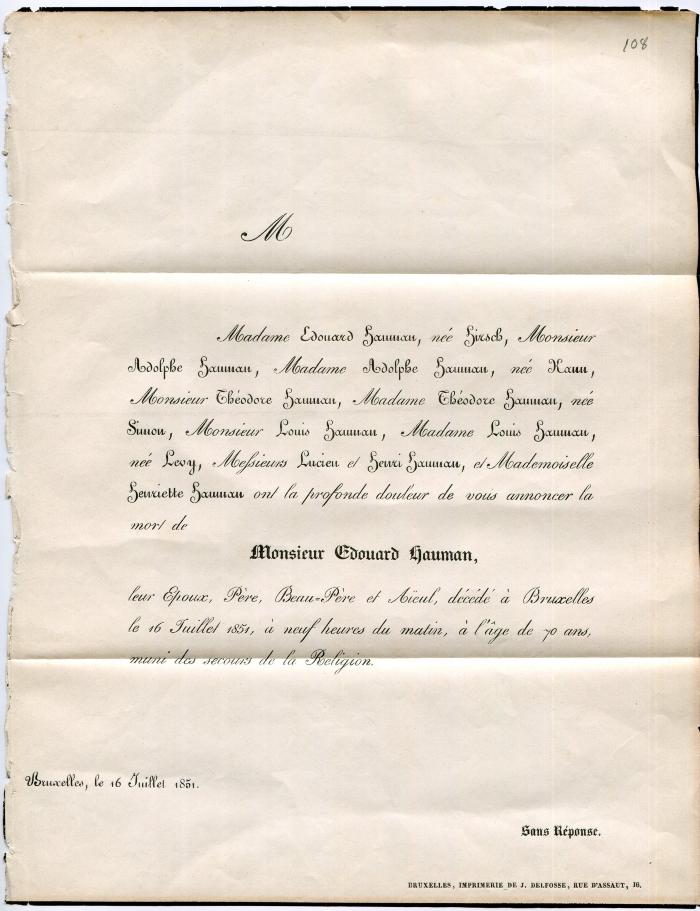 108
M
Madame Edouard Hauman, née Hirsch, Monsieur
Adolphe Hauman, Madame Adolphe Hauman, née Kann,
Monsieur Théodore Hauman, Madame Théodore Hauman, née
Simon, Monsieur Louis Hauman, Madame Louis Hauman,
née Levy, Messieurs Lucien et Henri Hauman, et Mademoiselle
Henriette Hauman ont la profonde douleur de vous annoncer la
mort de
Monsieur Edouard Hauman,
leur Epoux, Père, Beau-Père et Aïeul, décédé à Bruxelles
le 16 Juillet 1851, à neuf heures du matin, à l'âge de 70 ans,
muni des secours de la Religion.
Bruxelles, le 16 Juillet 1851.
Sans Réponse.
BRUXELLES, IMPRIMERIE DE J. DELFOSSE, RUE D'ASSAUT, 16.